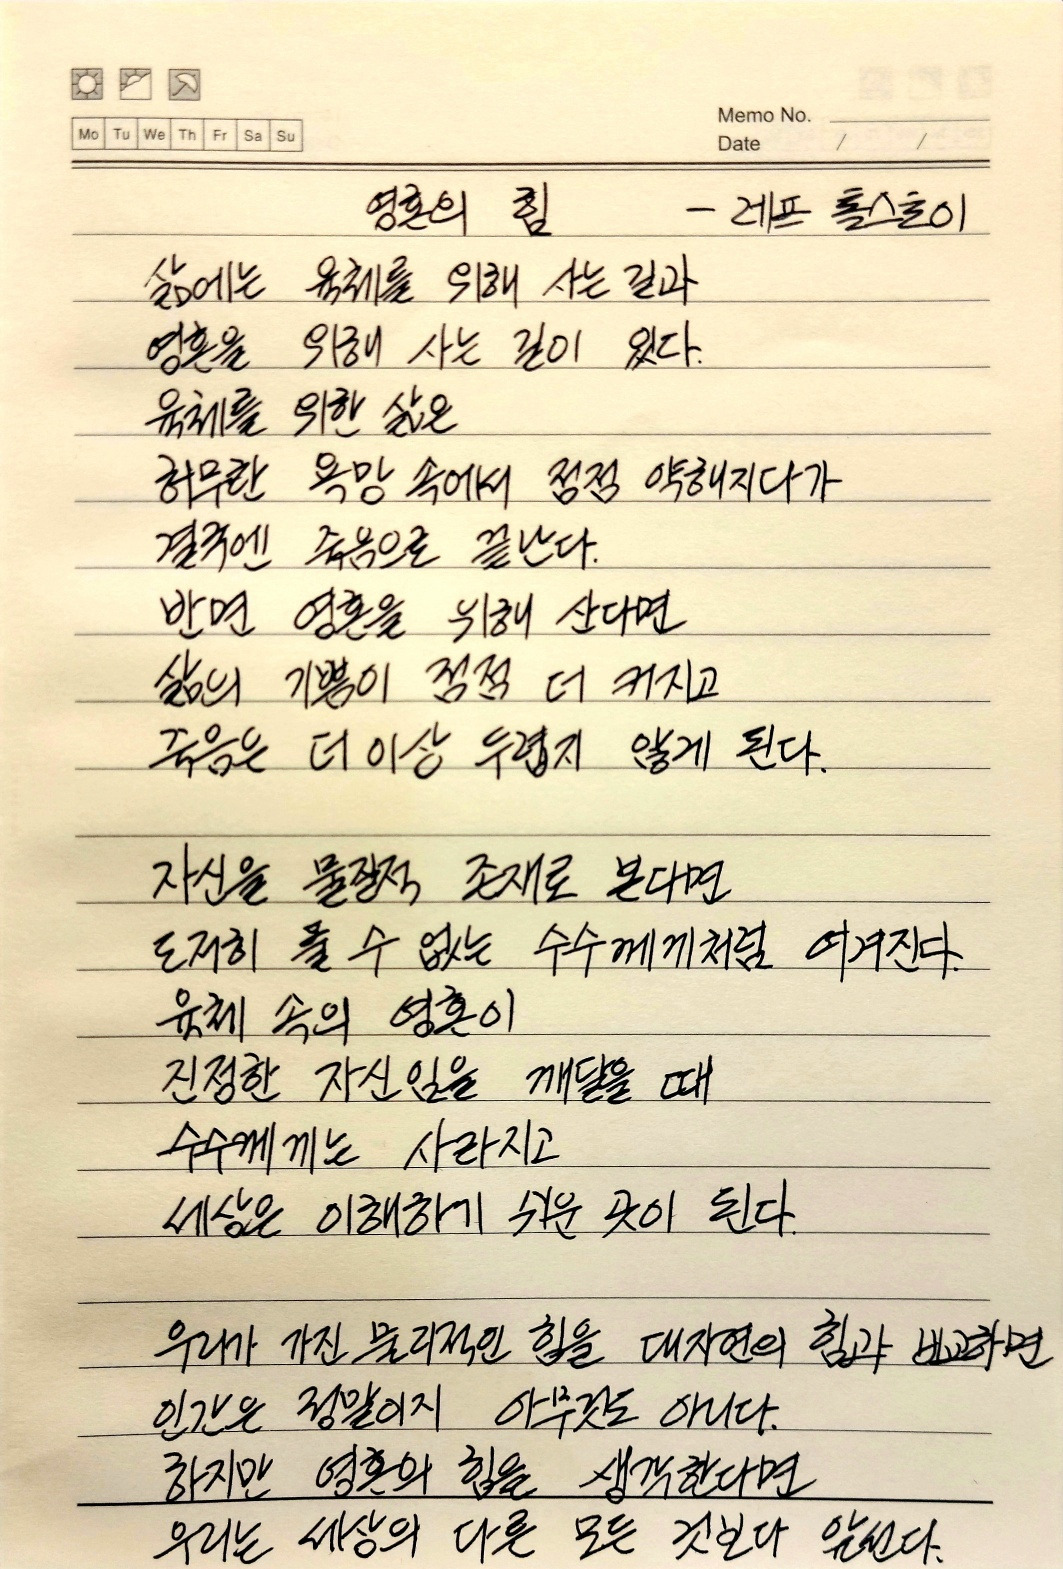 Memo No.
Mo Tu We Th Fr Sa Su
Date / /
영혼의 힘 - 레프 톨스토이
삶에는 육체를 위해 사는 길과
영혼을 위해 사는 길이 있다.
육체를 위한 삶은
허무한 욕망 속에서 점점 약해지다가
결국엔 죽음으로 끝난다.
반면 영혼을 위해 산다면
삶의 기쁨이 점점 더 커지고
죽음은 더 이상 두렵지 않게 된다.
자신을 물질적 존재로 본다면
도저히 풀 수 없는 수수께끼처럼 여겨진다.
육체 속의 영혼이
진정한 자신임을 깨달을 때
수수께끼는 사라지고
세상은 이해하기 쉬운 곳이 된다.
우리가 가진 물리적인 힘을 대자연의 힘과 비교하면
인간은 정말이지 아무것도 아니다.
하지만 영혼의 힘을 생각한다면
우리는 세상의 다른 모든 것보다 앞선다.